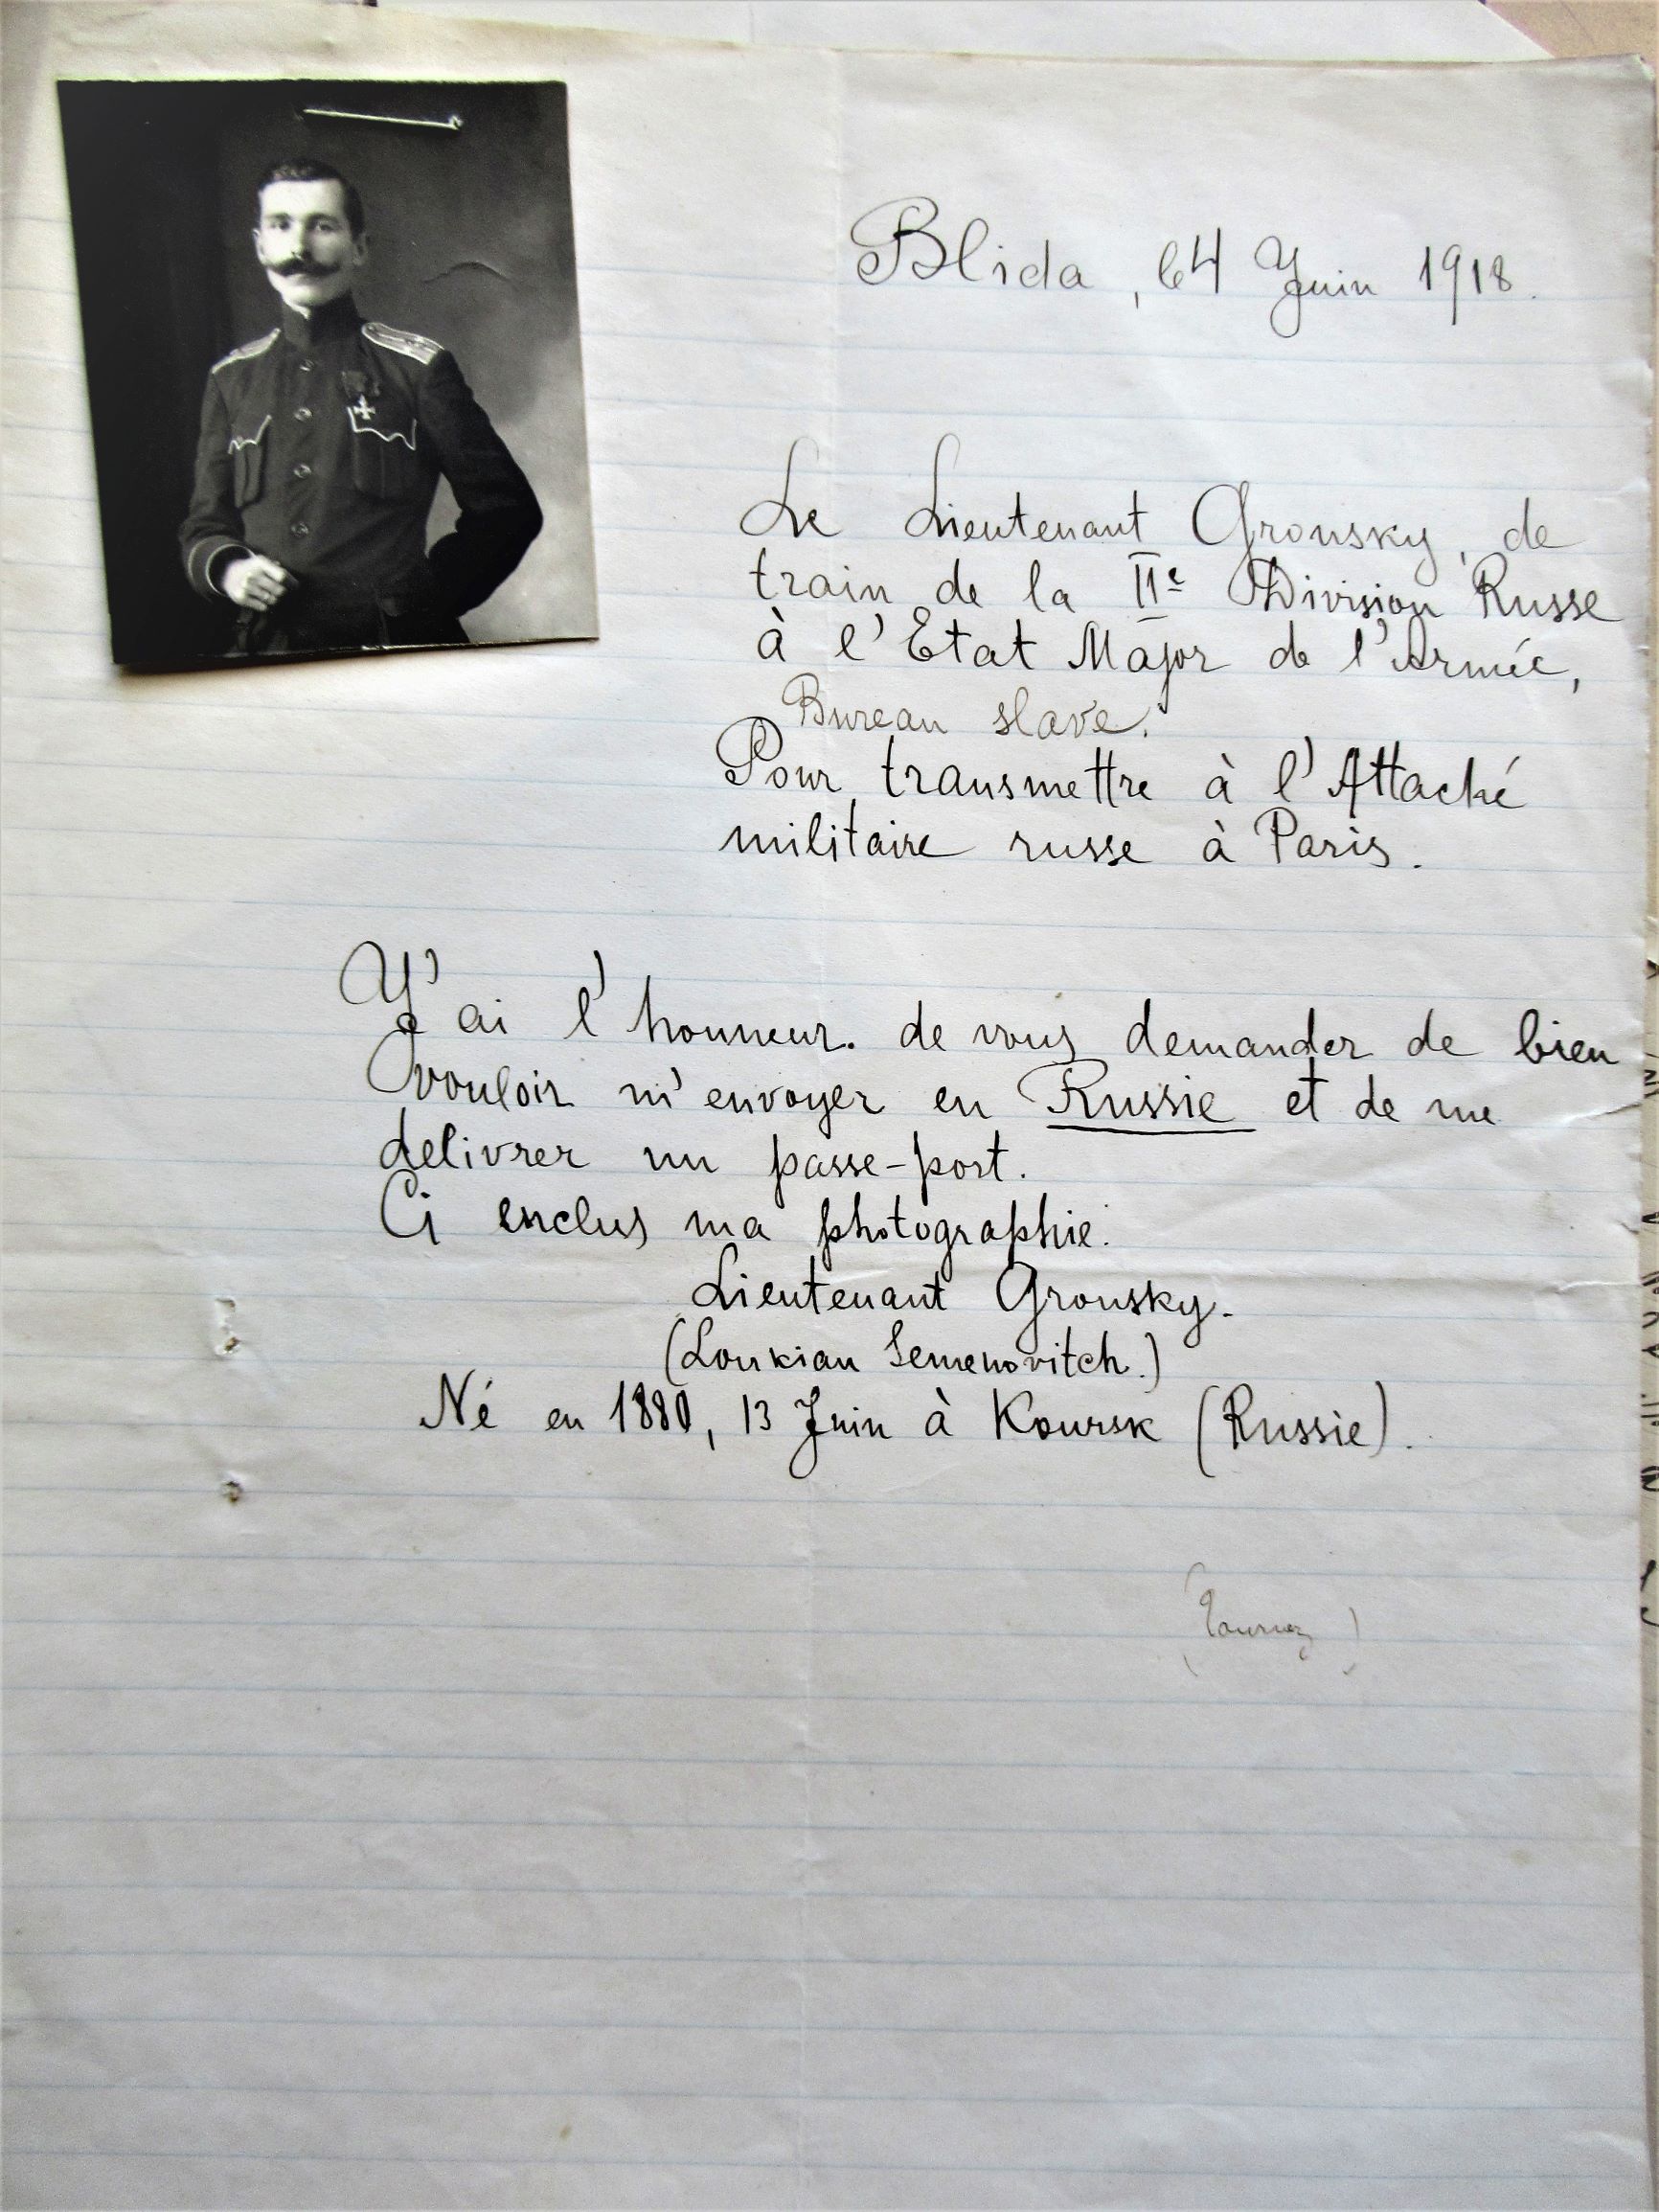 Blida, le 4 Juin 1918.
Le Lieutenant Gronsky, de
train de la IIe Division Russe
à l'Etat Major de l'Armée,
Bureau slave.
Pour transmettre à l'Attaché
militaire russe à Paris.
J'ai l'honneur. de vous demander de bien
vouloir m'envoyer en Russie et de me
delivrer un passe-port.
Ci enclus ma photographie.
Lieutenant Gronsky.
(Loukian Semenovitch.)
Né en 1880, 13 Juin à Koursk (Russie).
(Tournez)